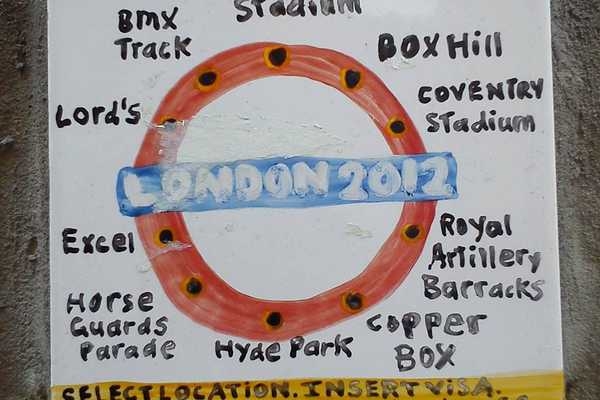 Stadium
BMX
Track
BOX Hill
Lord's
COVENTRY
Stadium
LONDON 2012
Excel
Royal
Artillery
Barracks
Horse
Guards
Parade
Hyde Park
COPPER
BOX
SELECT LOCATION. INSERT VISA.